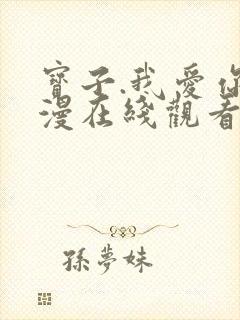 寶子.我愛你
漫在綫觀看
孫夢妹